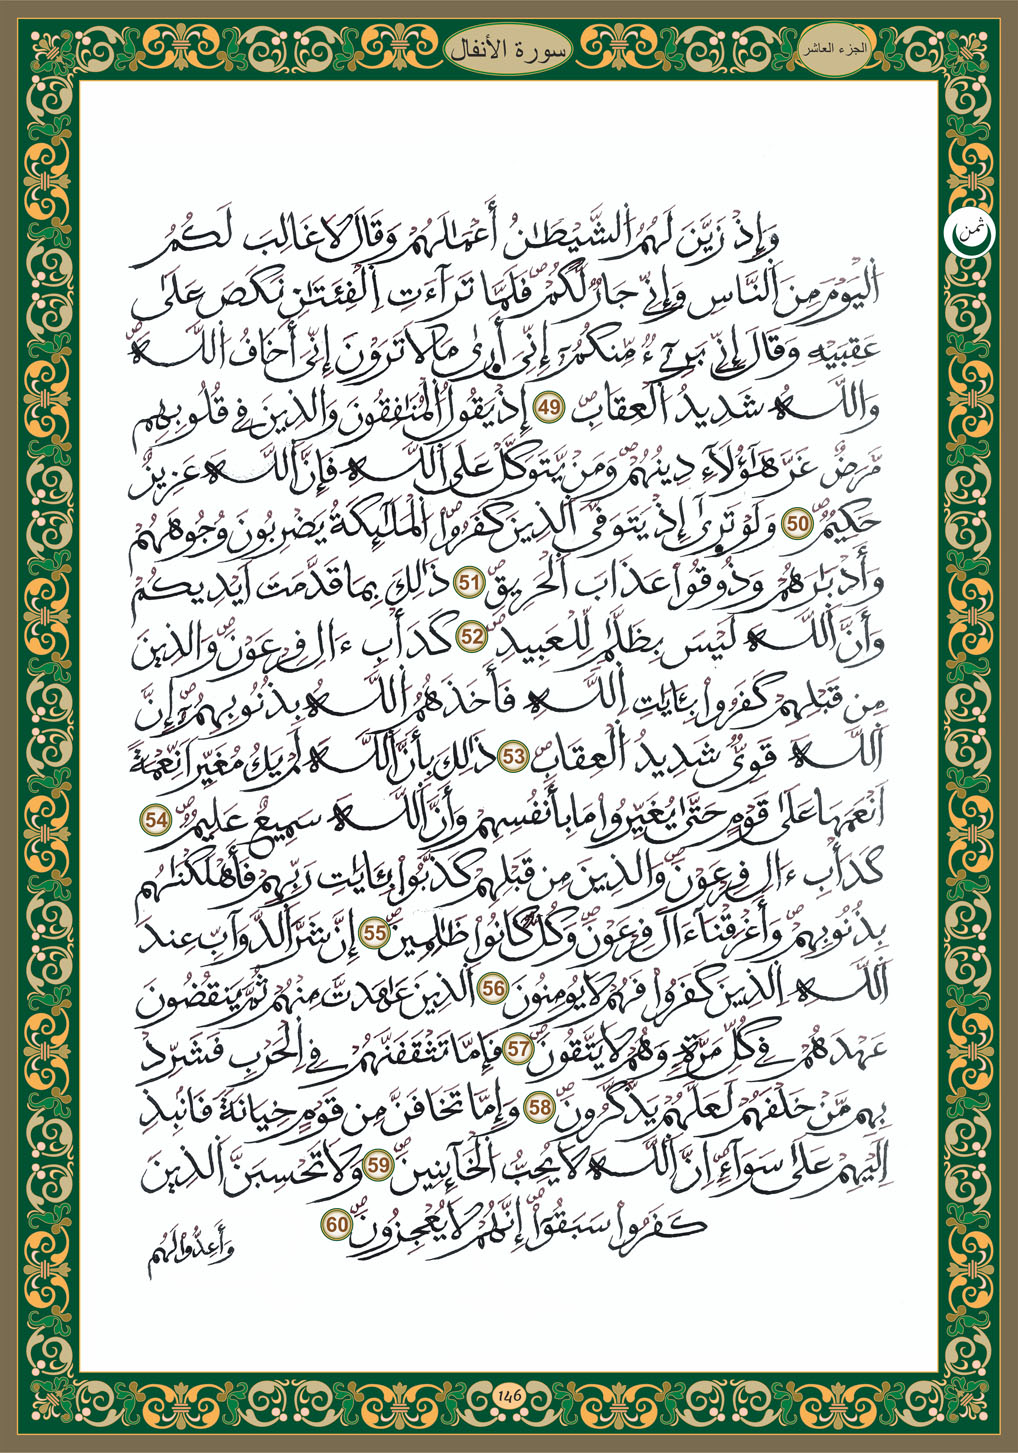 الجزء العاشر
سورة الأنفال
ثمن
وَإِذْ زَيَّنَ لَهُمُ اُلشَّيْطَٰنُ أَعْمَٰلَهُمْ وَقَالَ لَا غَالِبَ لَكُمُ
اُلْيَوْمَ مِنَ اَلنَّاسِ وَإِنِّي جَارٌ لَّكُمْ فَلَمَّا تَرَآءَتِ اِلْفِئَتَٰنِ نَكَصَ عَلَىٰ
عَقِبَيْهِ وَقَالَ إِنِّي بَرِيٓءٌ مِّنكُمُۥٓ إِنِّيَ أَرَىٰ مَا لَا تَرَوْنَ إِنِّيَ أَخَافُ اُللَّهَ
وَاللَّهُ شَدِيدُ اُلْعِقَابِ 49 إِذْ يَقُولُ اُلْمُنَٰفِقُونَ وَالذِينَ فِي قُلُوبِهِم
مَّرَضٌ غَرَّ هَٰٓؤُلَآءِ دِينُهُمْ وَمَنْ يَّتَوَكَّلْ عَلَى اَللَّهِ فَإِنَّ اَللَّهَ عَزِيزٌ
حَكِيمٌ 50 وَلَوْ تَرَىٰٓ إِذْ يَتَوَفَّى اَلذِينَ كَفَرُوا اُلْمَلَٰٓئِكَةُ يَضْرِبُونَ وُجُوهَهُمْ
وَأَدْبَٰرَهُمْ وَذُوقُوا عَذَابَ اَلْحَرِيقِ 51 ذَٰلِكَ بِمَا قَدَّمَتَ اَيْدِيكُمْ
وَأَنَّ اَللَّهَ لَيْسَ بِظَلَّٰمٍ لِّلْعَبِيدِ 52 كَدَأْبِ ءَالِ فِرْعَوْنَ وَالذِينَ
مِن قَبْلِهِمْ كَفَرُوا بِـَٔايَٰتِ اِللَّهِ فَأَخَذَهُمُ اُللَّهُ بِذُنُوبِهِمُۥٓ إِنَّ
اَللَّهَ قَوِيٌّ شَدِيدُ اُلْعِقَابِ 53 ذَٰلِكَ بِأَنَّ اَللَّهَ لَمْ يَكُ مُغَيِّراً نِّعْمَةً
اَنْعَمَهَا عَلَىٰ قَوْمٍ حَتَّىٰ يُغَيِّرُوا مَا بِأَنفُسِهِمْ وَأَنَّ اَللَّهَ سَمِيعٌ عَلِيمٌ 54
كَدَأْبِ ءَالِ فِرْعَوْنَ وَالذِينَ مِن قَبْلِهِمْ كَذَّبُوا بِـَٔايَٰتِ رَبِّهِمْ فَأَهْلَكْنَٰهُم
بِذُنُوبِهِمْ وَأَغْرَقْنَآ ءَالَ فِرْعَوْنَ وَكُلٌّ كَانُوا ظَٰلِمِينَ 55 إِنَّ شَرَّ اَلدَّوَآبِّ عِندَ
اَللَّهِ اِلذِينَ كَفَرُوا فَهُمْ لَا يُومِنُونَ 56 اَلذِينَ عَٰهَدتَّ مِنْهُمْ ثُمَّ يَنقُضُونَ
عَهْدَهُمْ فِي كُلِّ مَرَّةٍ وَهُمْ لَا يَتَّقُونَ 57 فَإِمَّا تَثْقَفَنَّهُمْ فِي اِلْحَرْبِ فَشَرِّدْ
بِهِم مَّنْ خَلْفَهُمْ لَعَلَّهُمْ يَذَّكَّرُونَ 58 وَإِمَّا تَخَافَنَّ مِن قَوْمٍ خِيَانَةً فَانۢبِذِ
اِلَيْهِمْ عَلَىٰ سَوَآءٍ اِنَّ اَللَّهَ لَا يُحِبُّ اُلْخَآئِنِينَ 59 وَلَا تَحْسِبَنَّ اَلذِينَ
كَفَرُوا سَبَقُوٓا إِنَّهُمْ لَا يُعْجِزُونَ 60
وَأَعِدُّوا لَهُم
146